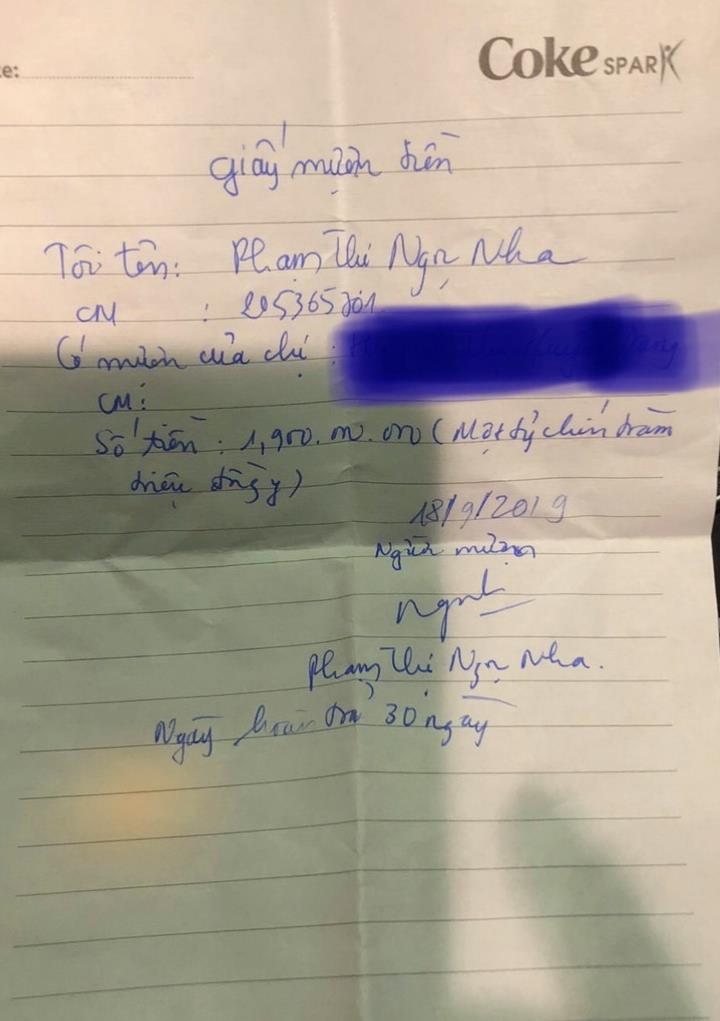 te:
Coke SPARK
giấy mượn tiền
Tôi tên: Phạm Thị Ngọc Nha
CM : 205365701
Có mượn của chị :
CM:
Số tiền : 1,900.000.000 (Một tỷ chín trăm
triệu đồng y)
18/9/2019
Người mượn
Phạm Thị Ngọc Nha.
Ngày hoàn trả 30 ngày